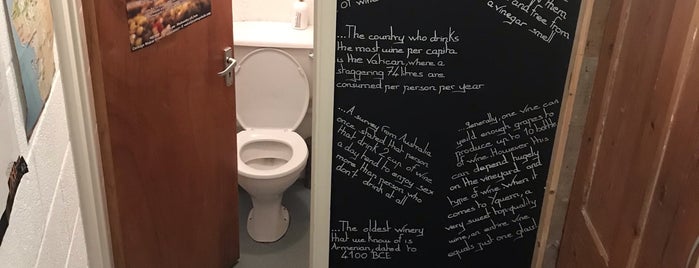 of wine
them
and free from
a vinegar smell
...The country who drinks
the most wine per capita
is the Vatican, where a
staggering 74 litres are
consumed per person per year
...A survey from Australia
once stated that person
that drink 2 cup of wine
a day tend to enjoy sex
more than person who
don't drink at all
...The oldest winery
that we know of is
Armenian, dated to
4100 BCE
...generally, one vine can
yeald enough grapes to
produce up to 10 bottle
of wine. However this
can depend hugely
on the vineyard and
type of wine, when it
comes to Yquem, a
very sweet top-quality
wine, an entire vine
equals just one glass!